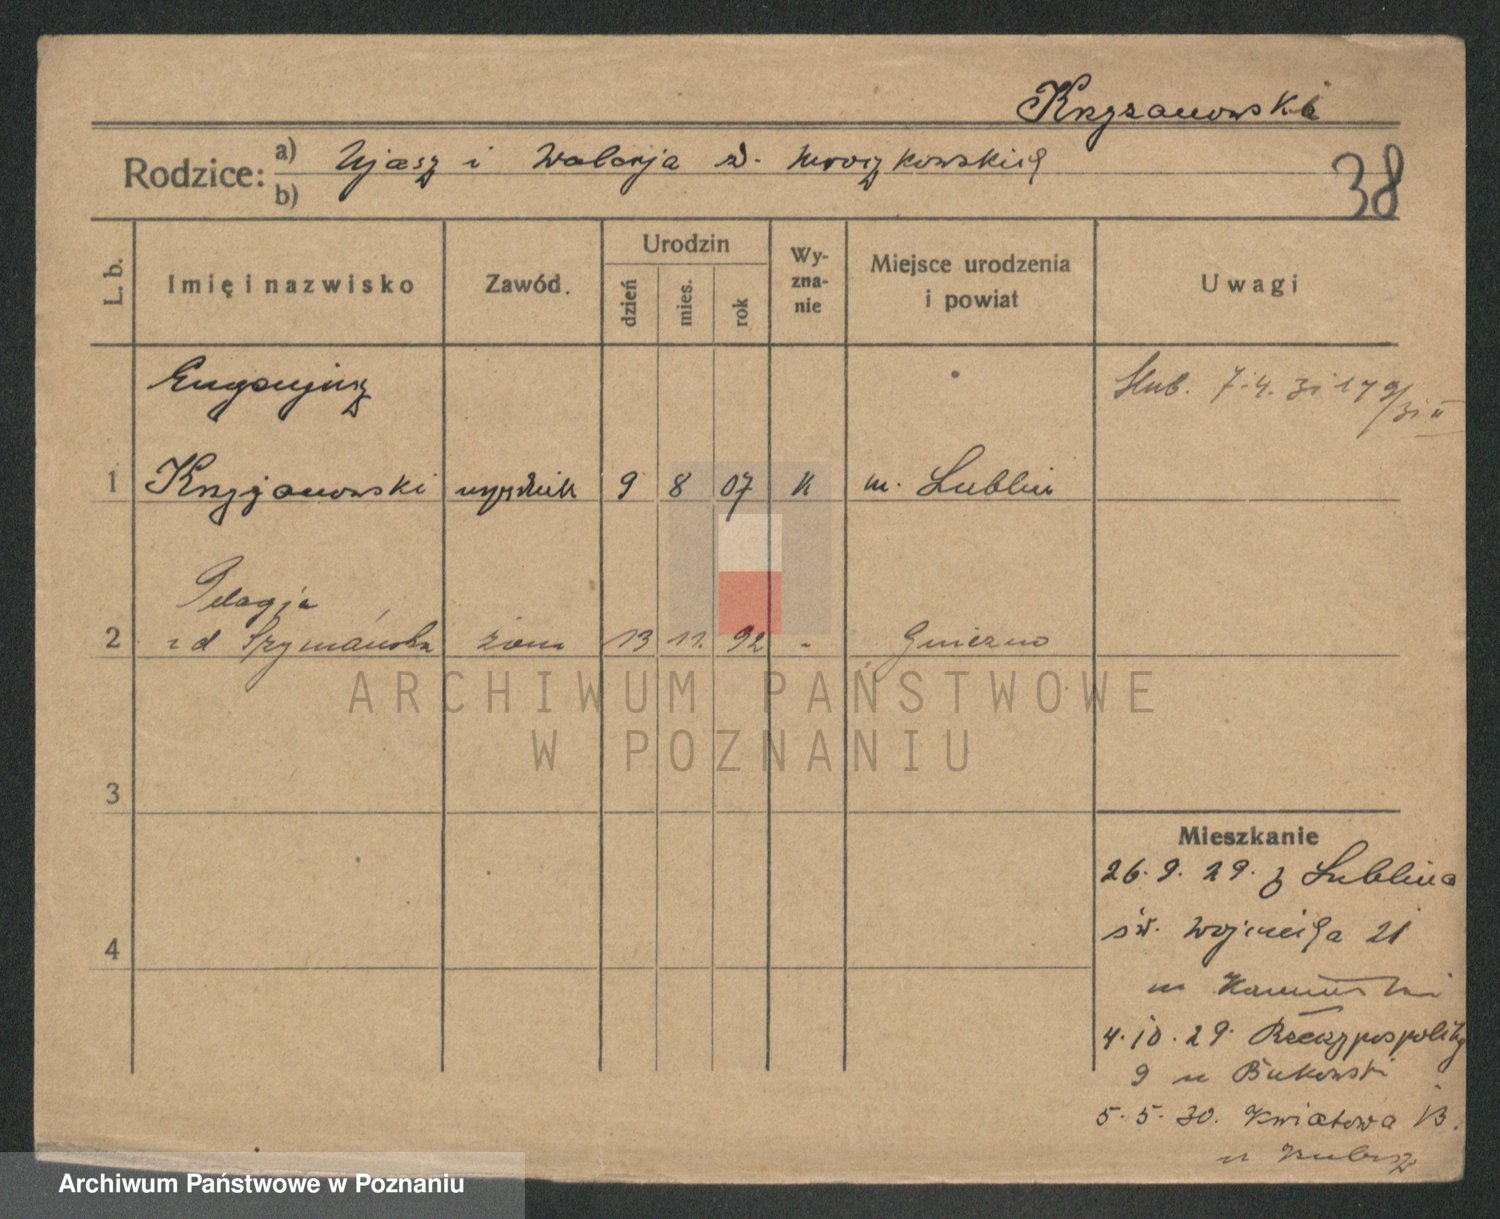 Krzyżanowski
Rodzice:
a) Ujasz i Walerja z d. Mroczkowskich
b)
38
L. b.
Imię i nazwisko
Zawód.
Urodzin
dzień
mies.
rok
Wy-
zna-
nie
Miejsce urodzenia
i powiat
Uwagi
Eugenjusz
ślub. 7.4.31
1 Krzyżanowski urzędnik 9 8 07 K m. Lublin
Pelagja
2 z d Szymańska żona 13 11. 92 " Gniezno
3
4
ARCHIWUM PAŃSTWOWE
W POZNANIU
Mieszkanie
26. 9. 29. z Lublina
św. Wojciecha 21
u
4. 10. 29. Rzeczypospolitej
9 u Bukowski
5. 5. 30. Kwiatowa 13.
u
Archiwum Państwowe w Poznaniu